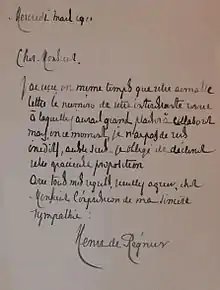 Mercredi 1 août 1900
Cher Monsieur.
J'ai reçu en même temps que votre aimable
lettre le numéro de votre intéressante revue
à laquelle j'aurais grand plaisir à collaborer
mais en ce moment, je n'ai pas de vers
inédits, aussi suis-je obligé de décliner
votre gracieuse proposition
Avec tous mes regrets, veuillez agréer, cher
Monsieur l'expression de ma sincère
sympathie :
Henri de Régnier